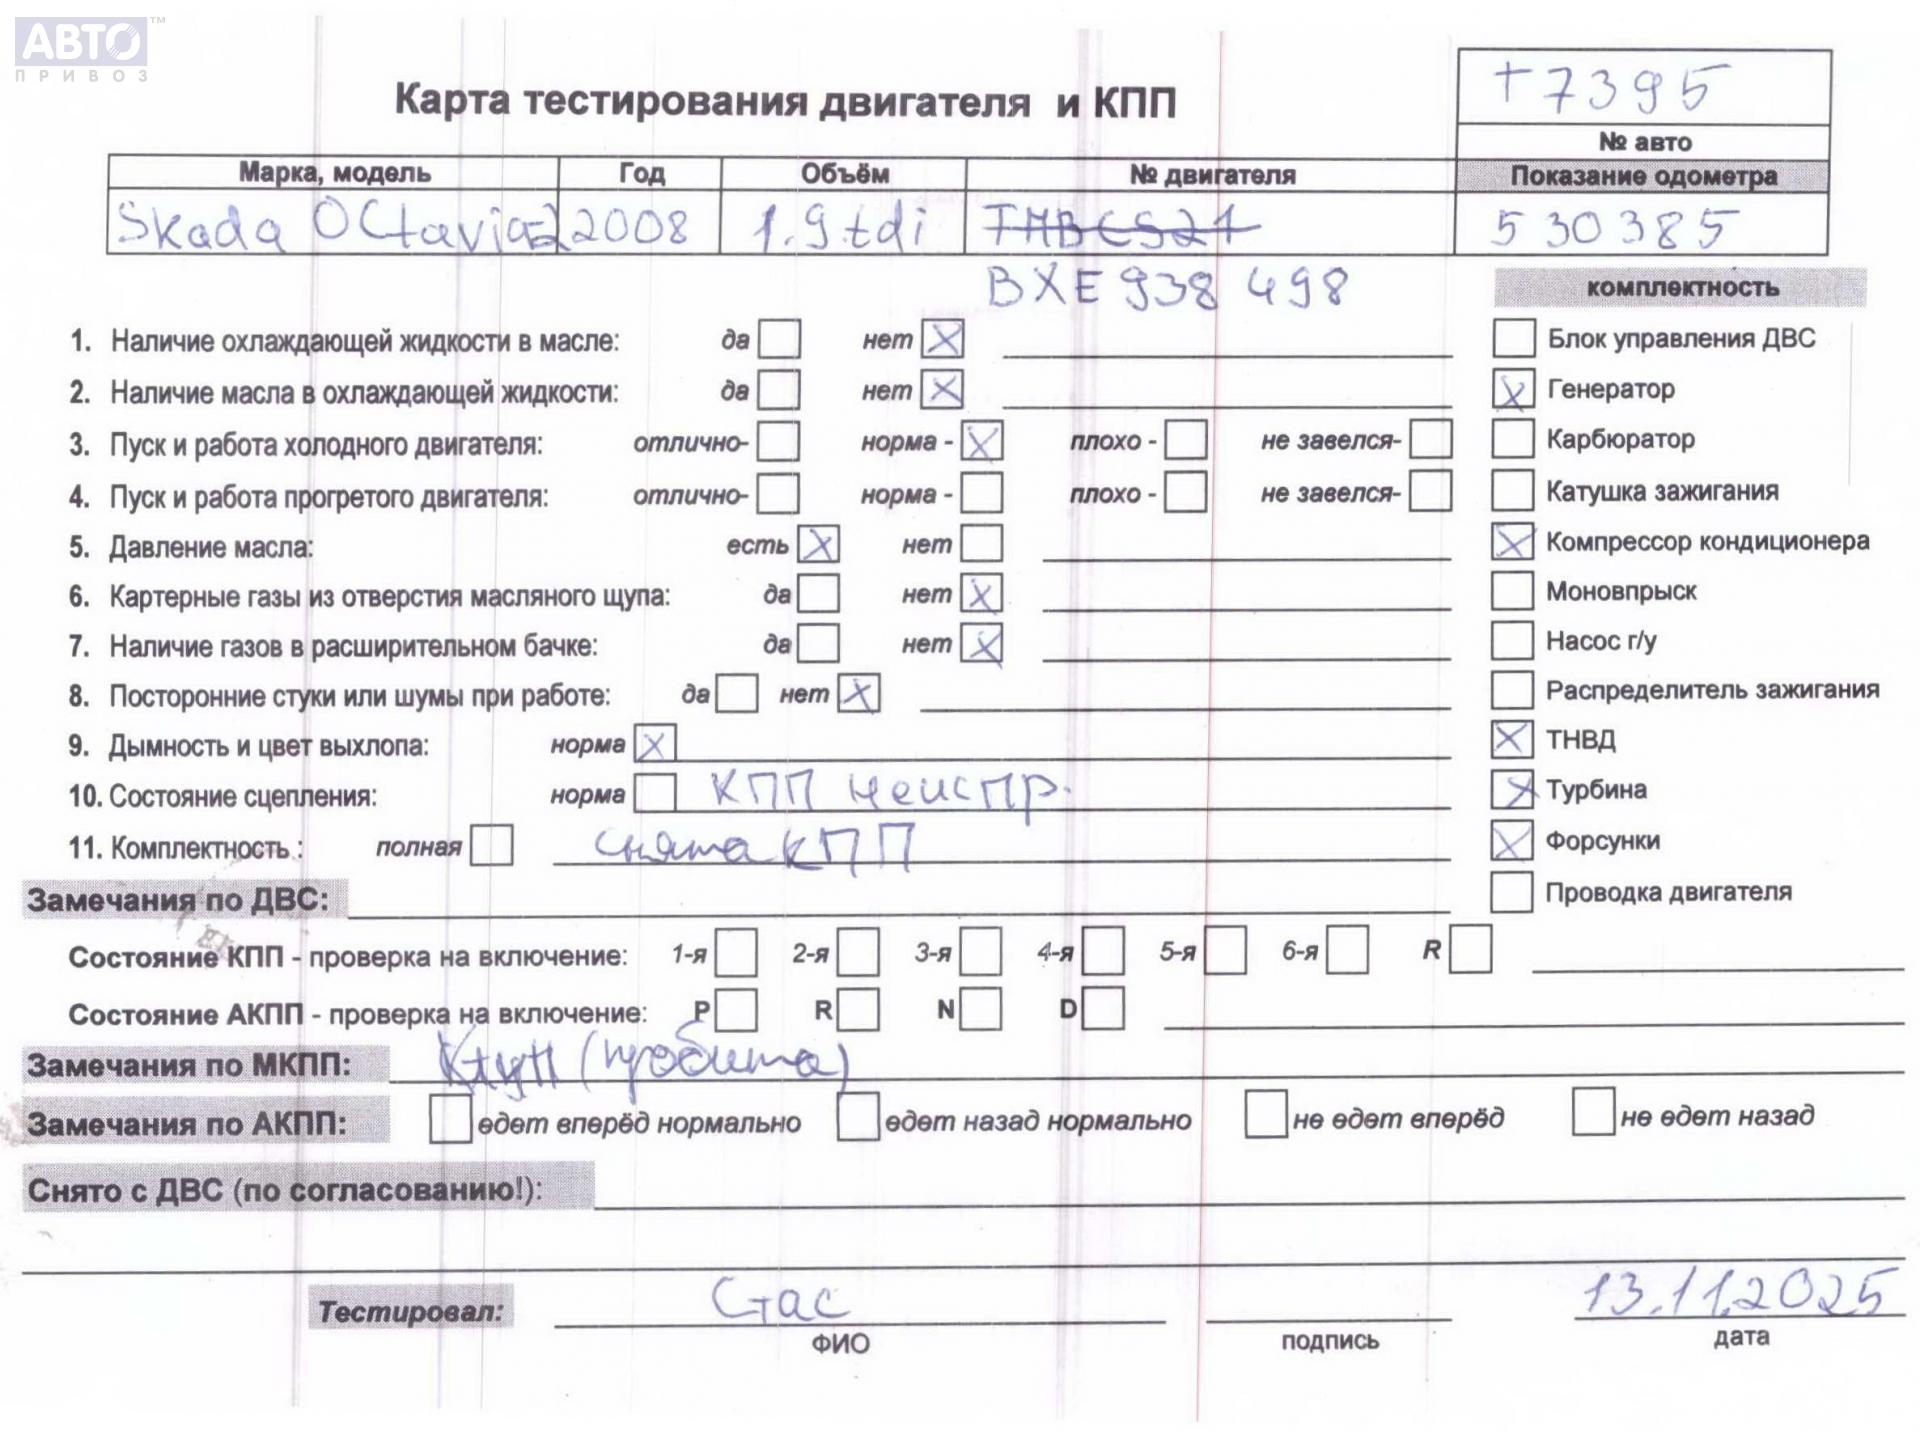 АВТО™
ПРИВОЗ
Карта тестирования двигателя и КПП
т7395
№ авто
Марка, модель Год Объём № двигателя Показание одометра
Skada OCtavia 2 2008 1.9.tdi TMBCS21 530385
BXE 938 498
комплектность
1. Наличие охлаждающей жидкости в масле: да нет X
Блок управления ДВС
2. Наличие масла в охлаждающей жидкости: да нет X
X Генератор
3. Пуск и работа холодного двигателя: отлично- норма - X плохо - не завелся-
Карбюратор
4. Пуск и работа прогретого двигателя: отлично- норма - плохо - не завелся-
Катушка зажигания
5. Давление масла: есть X нет
X Компрессор кондиционера
6. Картерные газы из отверстия масляного щупа: да нет X
Моновпрыск
7. Наличие газов в расширительном бачке: да нет X
Насос г/у
8. Посторонние стуки или шумы при работе: да нет X
Распределитель зажигания
9. Дымность и цвет выхлопа: норма X
X ТНВД
10. Состояние сцепления: норма КПП неиспр.
X Турбина
11. Комплектность : полная снята КПП
X Форсунки
Замечания по ДВС:
Проводка двигателя
Состояние КПП - проверка на включение: 1-я 2-я 3-я 4-я 5-я 6-я R
Состояние АКПП - проверка на включение: P R N D
Замечания по МКПП: (пробита)
Замечания по АКПП: едет вперёд нормально едет назад нормально не едет вперёд не едет назад
Снято с ДВС (по согласованию!):
Тестировал: Стас 13.11.2025
ФИО подпись дата